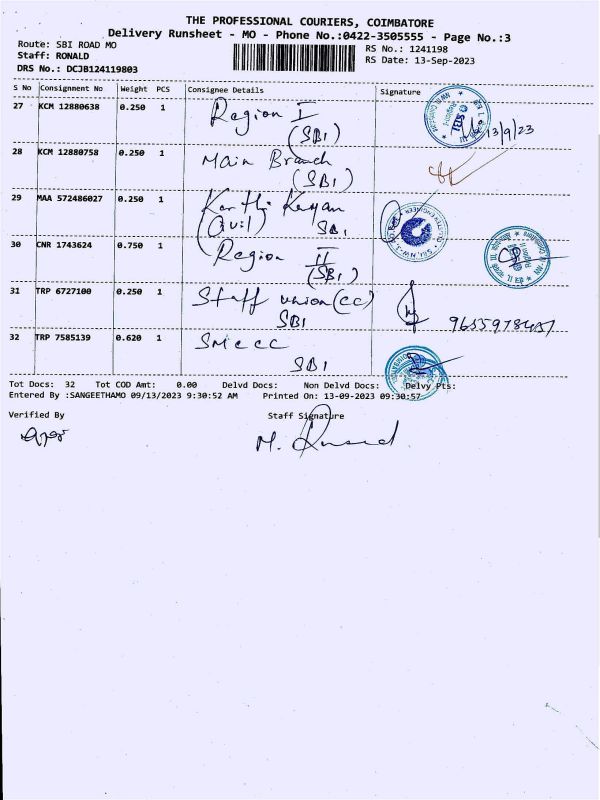 THE PROFESSIONAL COURIERS, COIMBATORE
Delivery Runsheet - MO - Phone No.:0422-3505555 - Page No.:3
Route: SBI ROAD MO RS No.: 1241198
Staff: RONALD RS Date: 13-Sep-2023
DRS No.: DCJB124119803
S No Consignment No Weight PCS Consignee Details Signature
27 KCM 12880638 0.250 1 Region I
(SBI) 13/9/23
28 KCM 12880758 0.250 1 Main Branch
(SBI)
29 MAA 572486027 0.250 1 Karthi Keyan
(Civil) SBI
30 CNR 1743624 0.750 1 Region II
(SBI)
31 TRP 6727100 0.250 1 Staff union (CC)
SBI
32 TRP 7585139 0.620 1 SMECC
SBI
Tot Docs: 32 Tot COD Amt: 0.00 Delvd Docs: Non Delvd Docs: Delvy Pts:
Entered By :SANGEETHAMO 09/13/2023 9:30:52 AM Printed On: 13-09-2023 09:30:57
Verified By Staff Signature